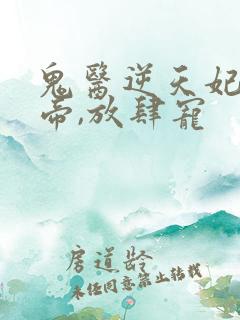 鬼醫逆天妃
帝,放肆寵
房道龄
未经同意禁止转载